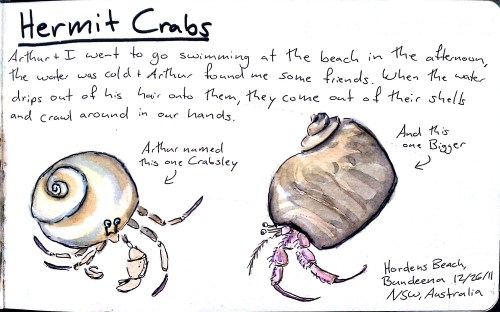 Hermit Crabs
Arthur + I went to go swimming at the beach in the afternoon,
the water was cold + Arthur found me some friends. When the water
drips out of his hair onto them, they come out of their shells
and crawl around in our hands.
Arthur named
this one Crabsley
And this
one Bigger
Hordens Beach,
Bundeena 12/26/11
NSW, Australia